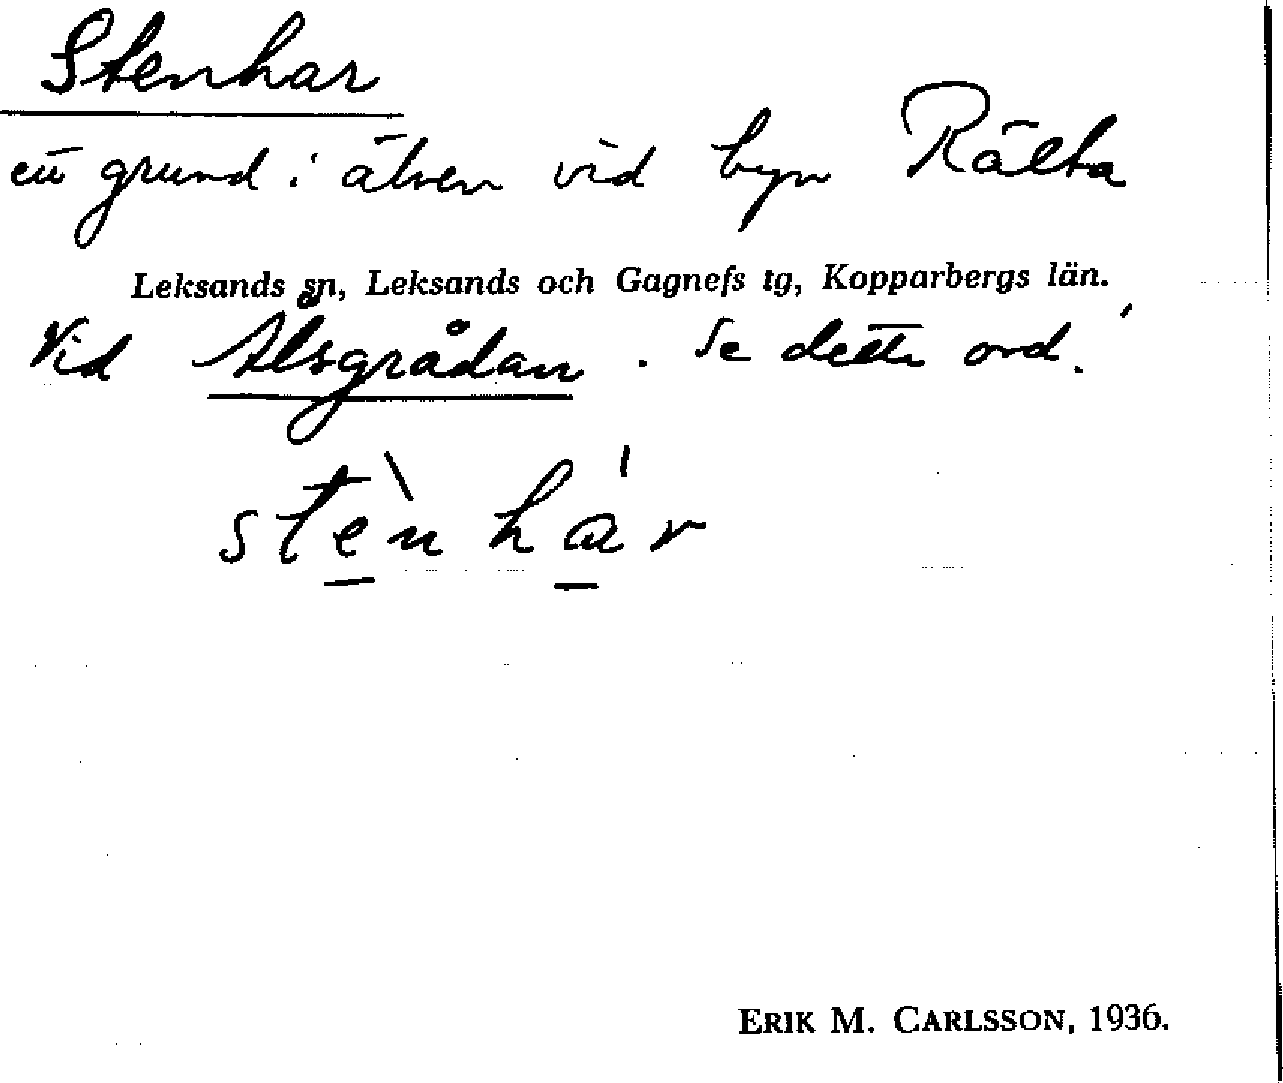 Stenhar
ett grund i älven vid byn Rälta
Leksands sn, Leksands och Gagnefs tg, Kopparbergs län.
Vid Ålsgrådan. Se detta ord.
stèn há r
ERIK M. CARLSSON, 1936.